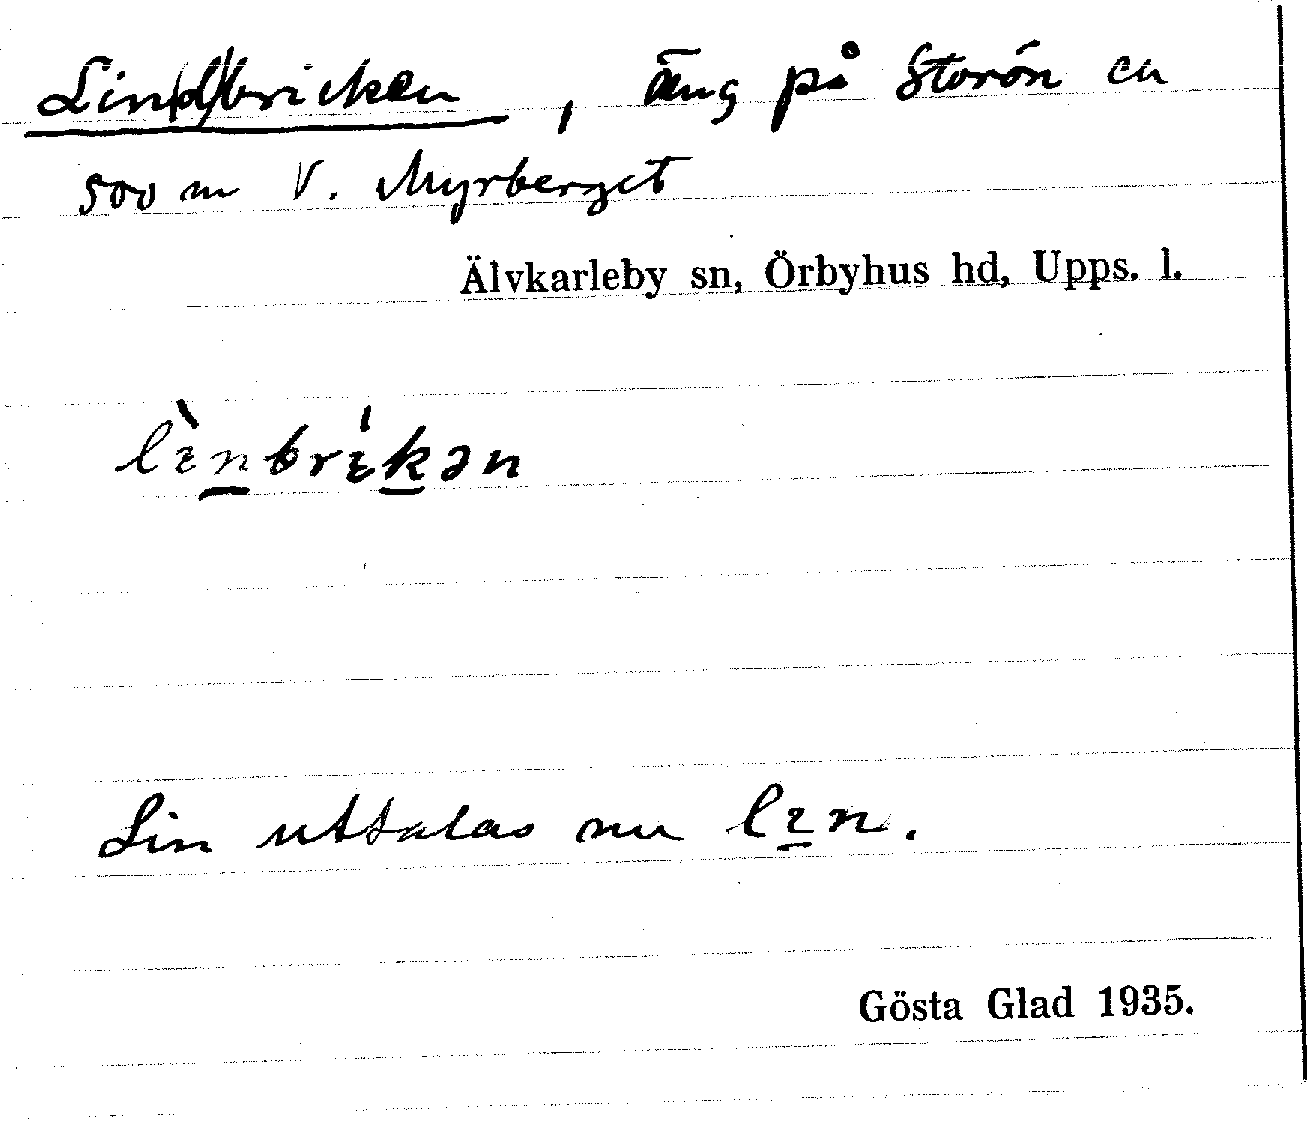 Lin(d)bricken, äng på Storön ca
500 m V. Myrberget
Älvkarleby sn, Örbyhus hd, Upps. l.
lìn̲brík̲ən
Lin uttalas nu li̲n.
Gösta Glad 1935.